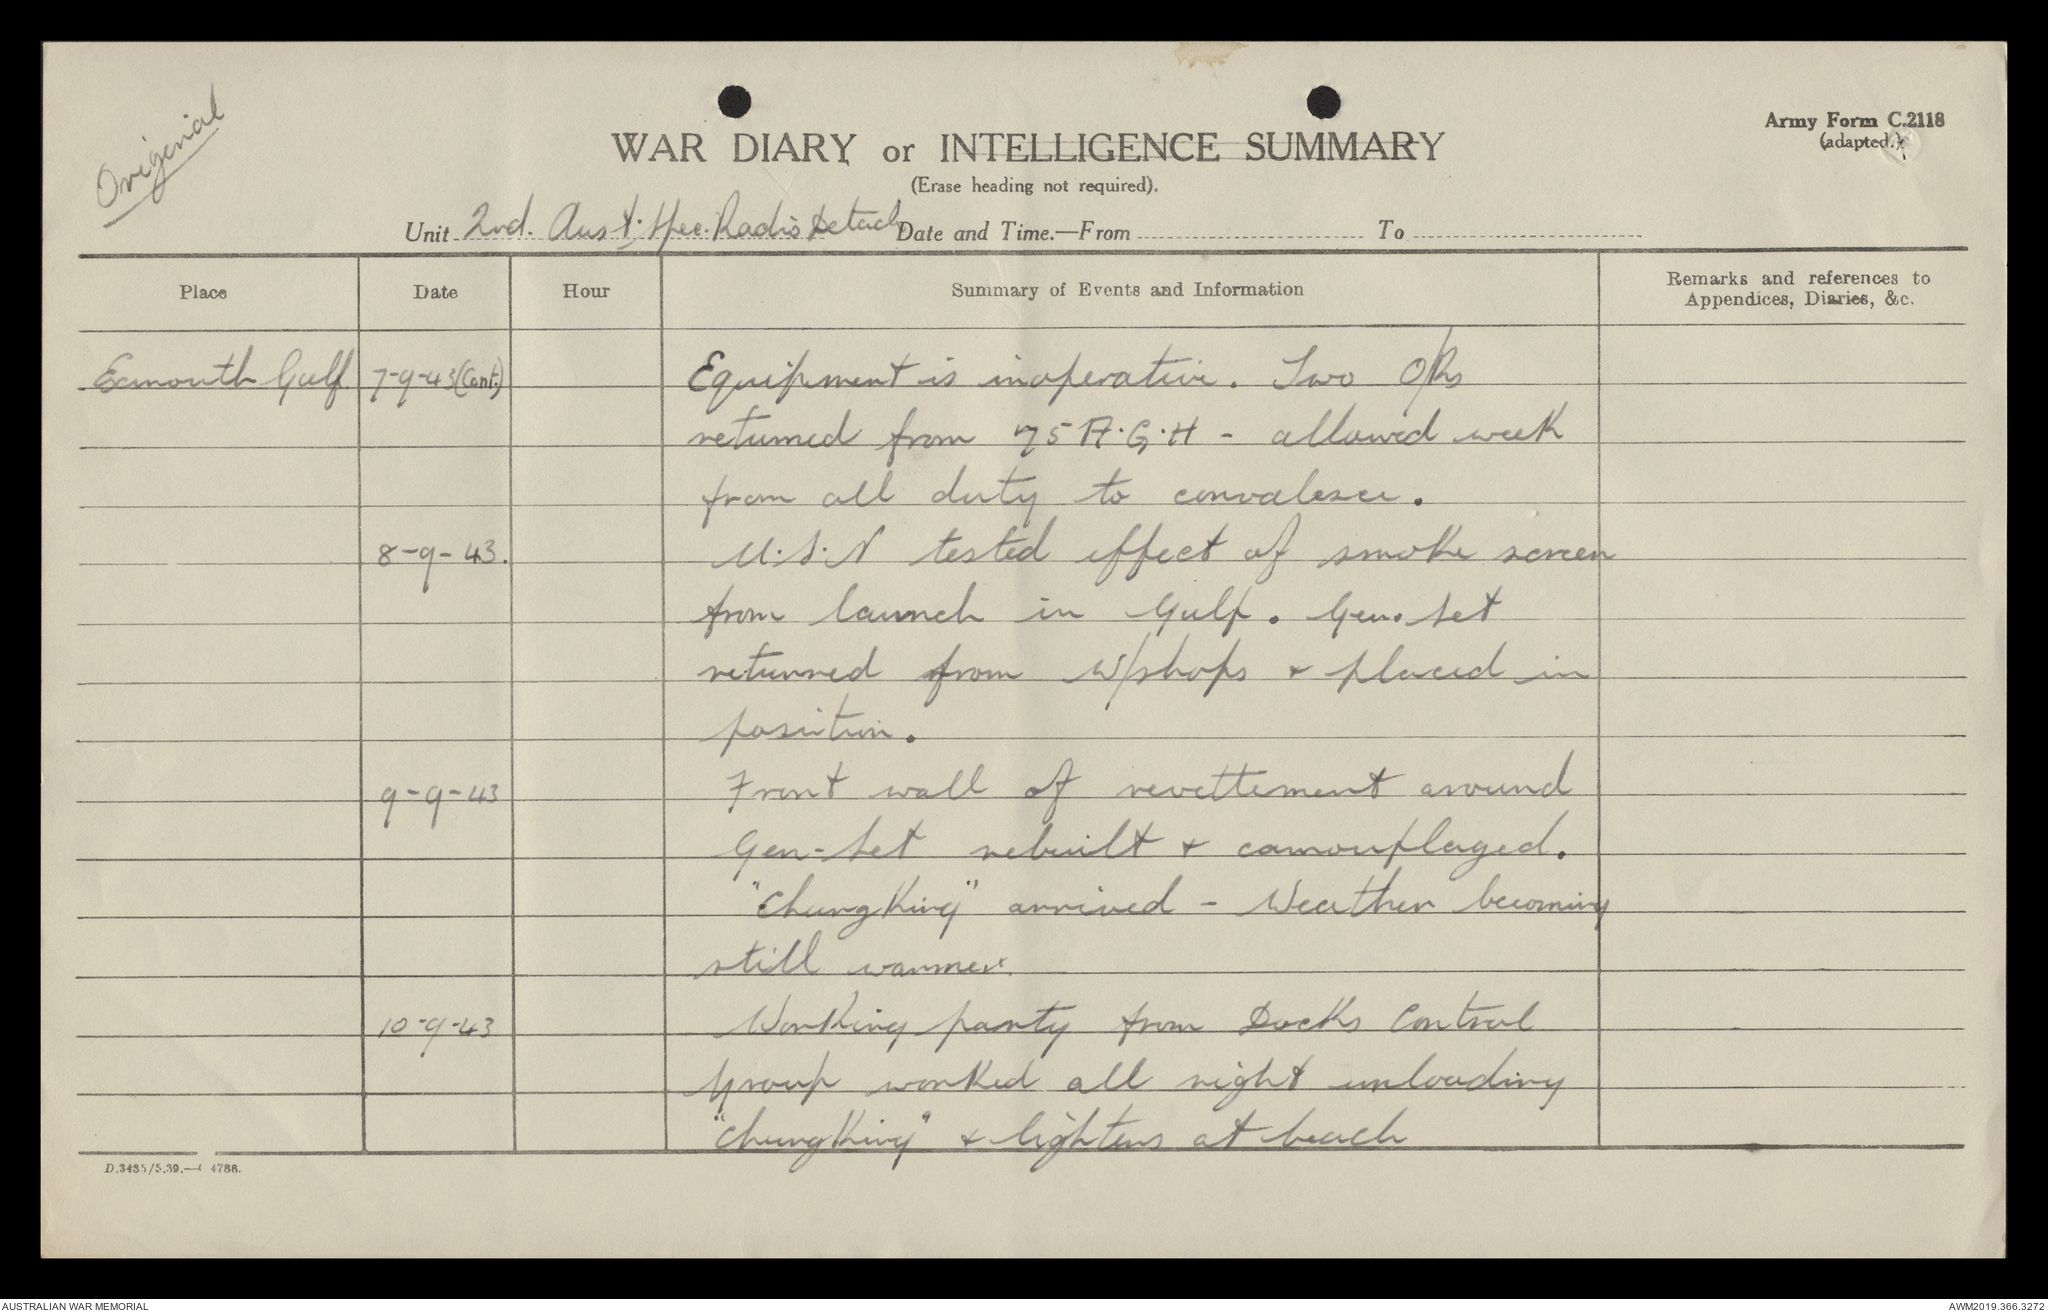 Original
Army Form C.2118
(adapted.)
WAR DIARY or INTELLIGENCE SUMMARY
(Erase heading not required).
Unit 2nd. Aust. Spec. Radio Detach Date and Time.—From To
Place Date Hour Summary of Events and Information Remarks and references to Appendices, Diaries, &c.
Exmouth Gulf 7-9-43 (Cont.) Equipment is inoperative. Two O/Rs
returned from 75 A.G.H - allowed week
from all duty to convalesce.
8-9-43. U.S.N tested effect of smoke screen
from launch in Gulf. Gen. Set
returned from W/shops & placed in
position.
9-9-43 Front wall of revettement around
Gen-Set rebuilt & camouflaged.
"ChungKing" arrived - Weather becoming
still warmer.
10-9-43 Working party from Docks Control
Group worked all night unloading
"ChungKing" & lighters at beach
D.3435/5.39.— 4788.
AUSTRALIAN WAR MEMORIAL
AWM2019.366.3272